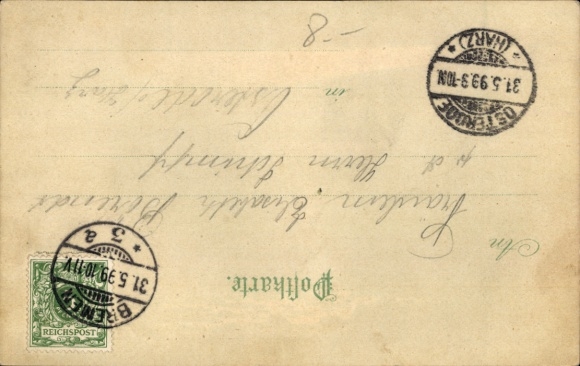 Postkarte.
An
Fräulein Elisabeth Berends
p. a. Herrn Schimpf
in Osterode/Harz
OSTERODE
31.5.99.9-10N.
* (HARZ) *
BREMEN
31.5.99.10-11V.
* 3 a
REICHSPOST
-8